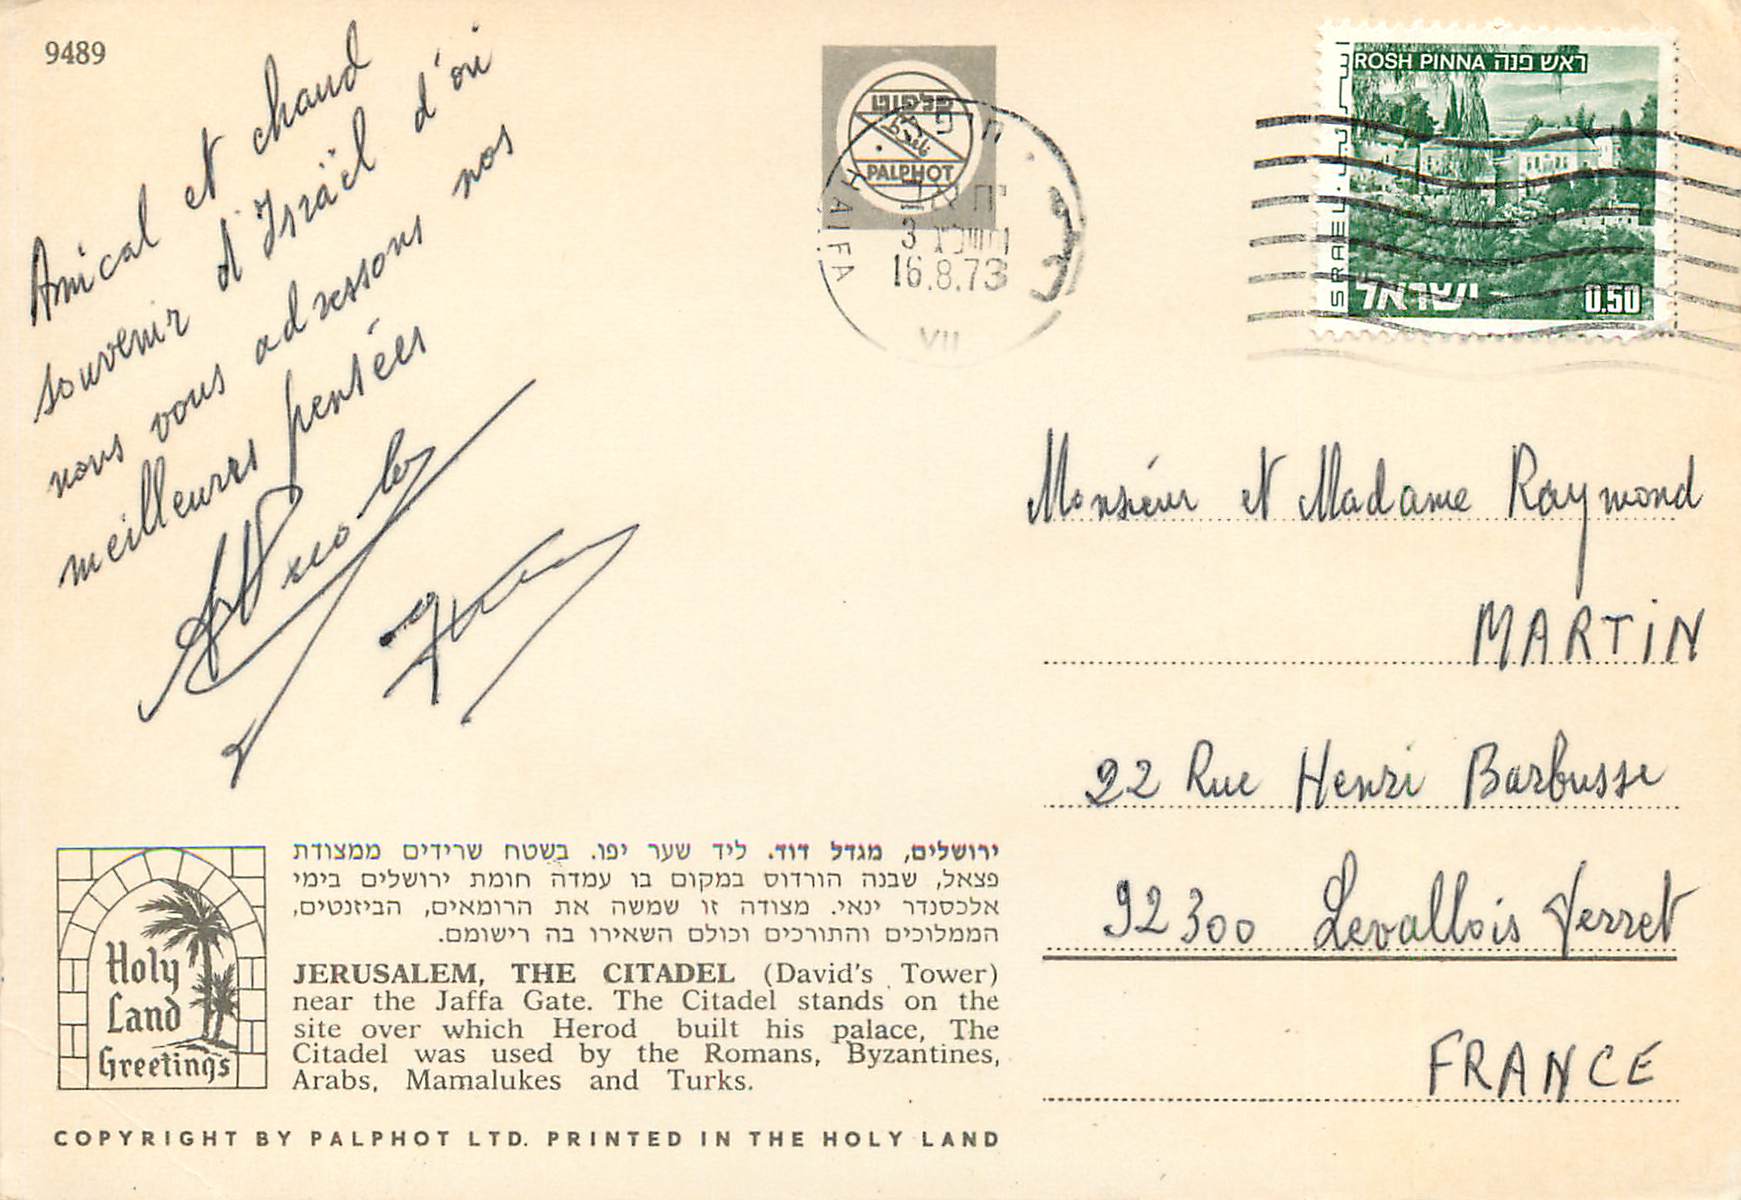 9489
Amical et chaud
souvenir d'Israël d'où
nous vous adressons nos
meilleures pensées
פלפוט
PALPHOT
חיפה
HAIFA
3
16.8.73
VII
ROSH PINNA ראש פנה
ISRAEL
ישראל
0.50
Monsieur et Madame Raymond
MARTIN
22 Rue Henri Barbusse
92300 Levallois Perret
FRANCE
ירושלים, מגדל דוד. ליד שער יפו. בשטח שרידים ממצודת
פצאל, שבנה הורדוס במקום בו עמדה חומת ירושלים בימי
אלכסנדר ינאי. מצודה זו שמשה את הרומאים, הביזנטים,
הממלוכים והתורכים וכולם השאירו בה רישומם.
JERUSALEM, THE CITADEL (David's Tower)
near the Jaffa Gate. The Citadel stands on the
site over which Herod built his palace, The
Citadel was used by the Romans, Byzantines,
Arabs, Mamalukes and Turks.
Holy
Land
Greetings
COPYRIGHT BY PALPHOT LTD. PRINTED IN THE HOLY LAND